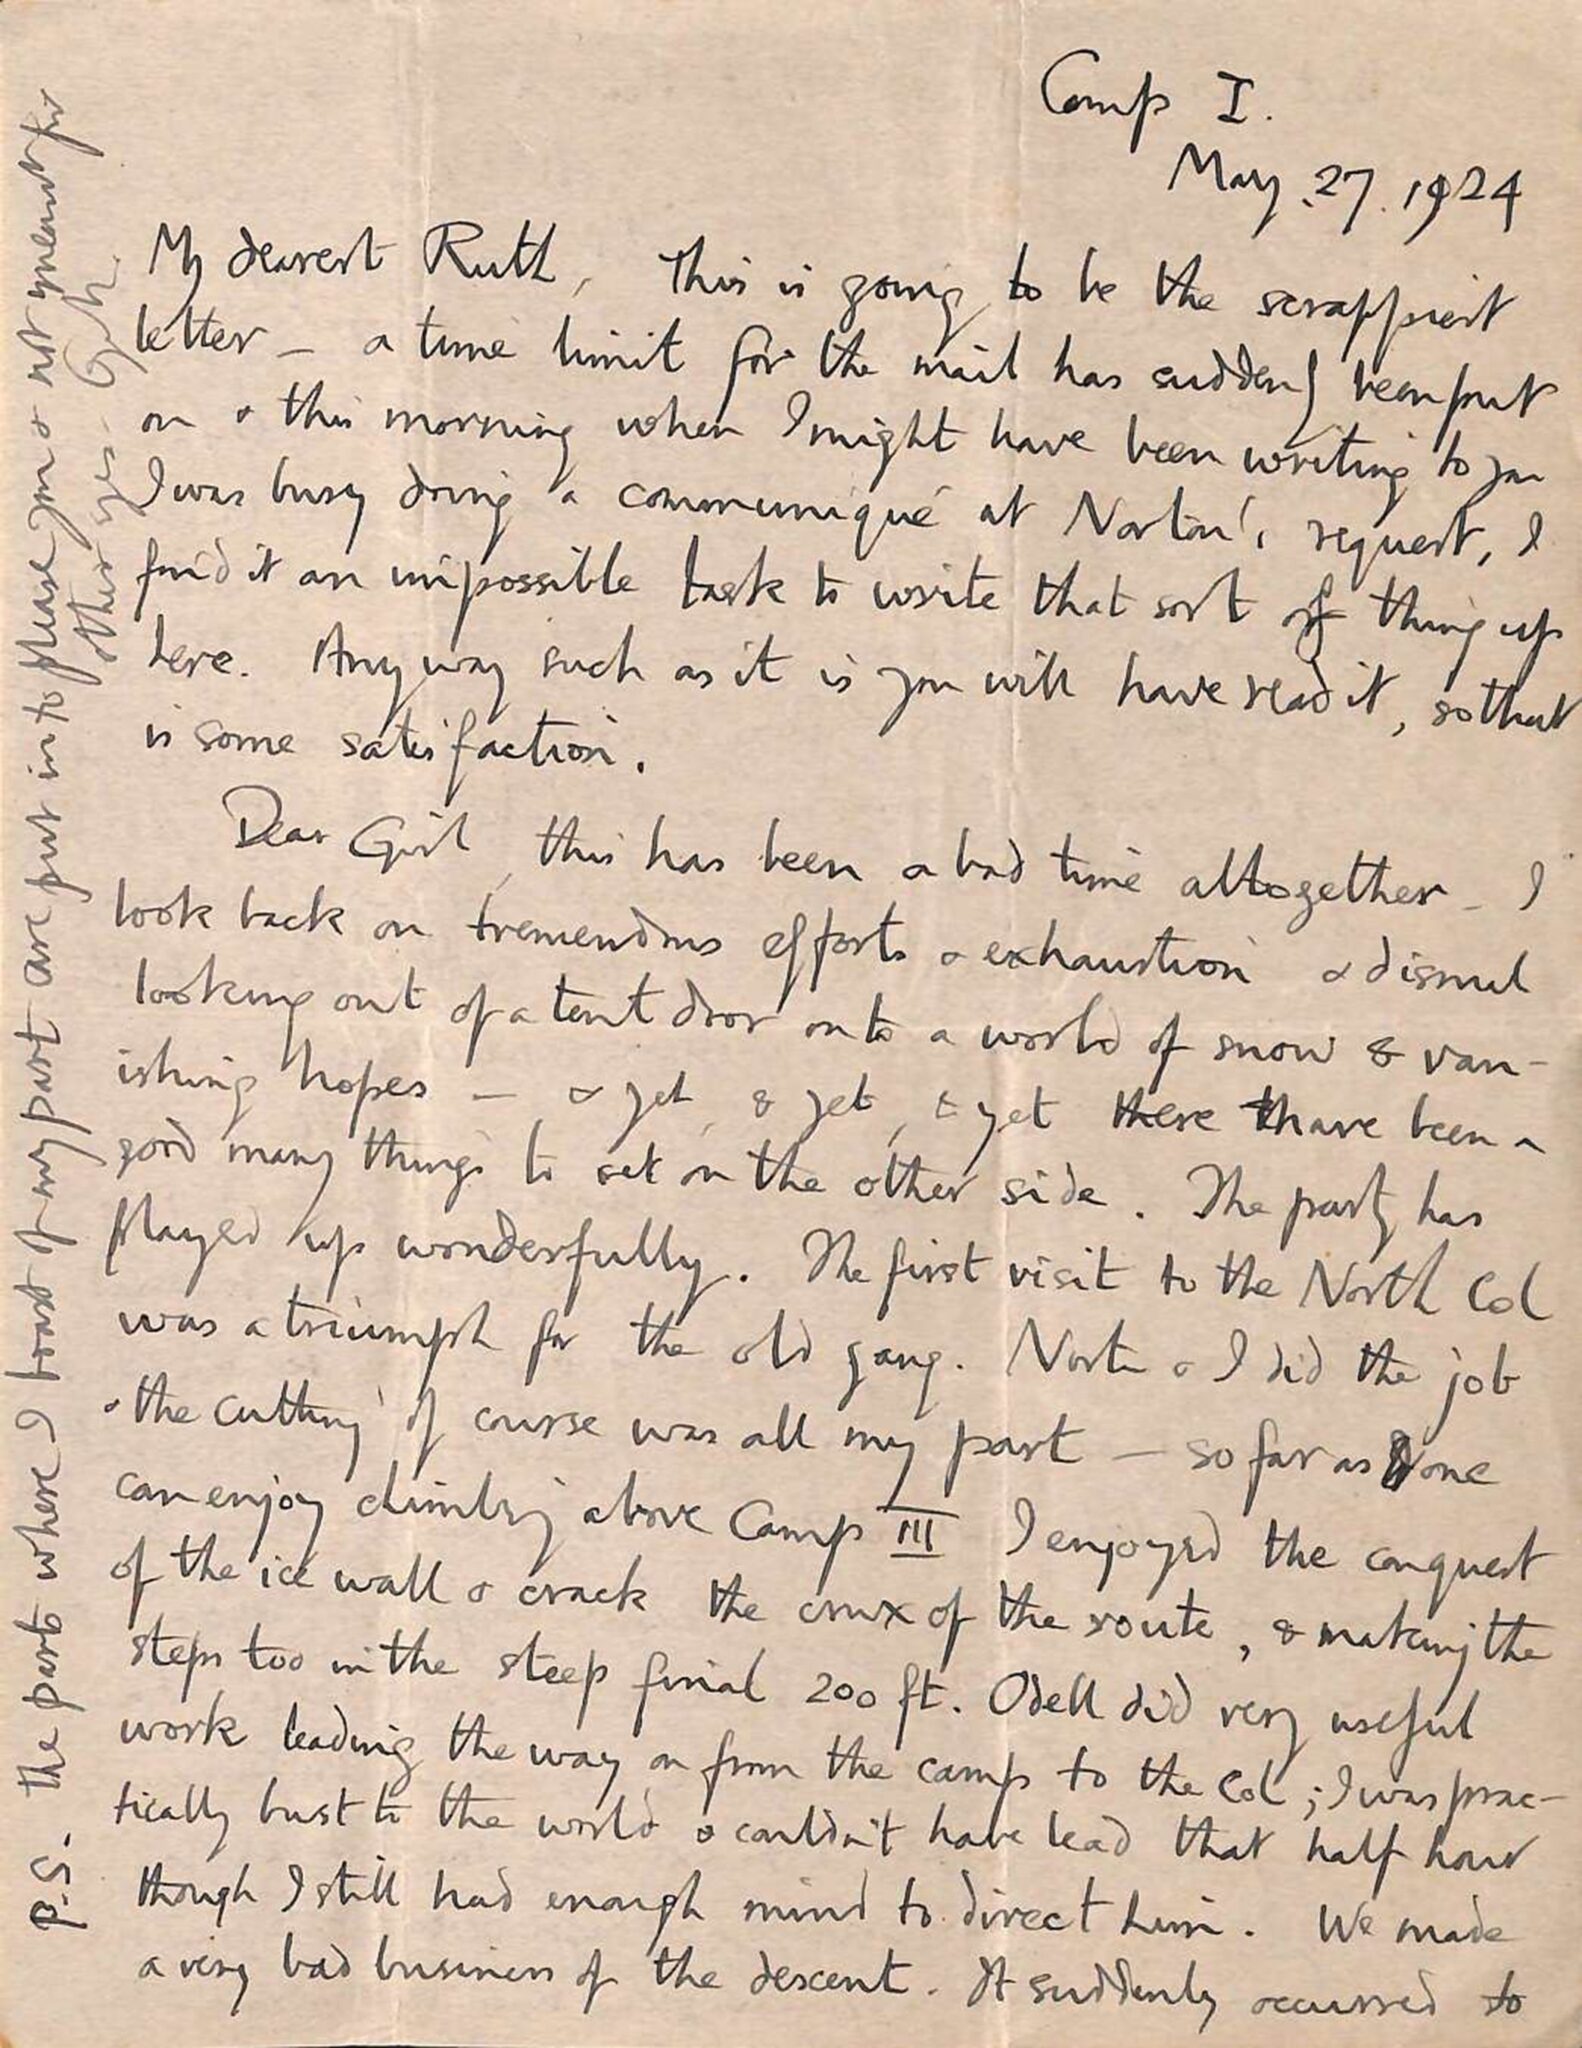 Camp I.
May. 27. 1924
My dearest Ruth, This is going to be the scrappiest
letter – a time limit for the mail has suddenly been put
on & this morning when I might have been writing to you
I was busy doing a communiqué at Norton's request, I
find it an impossible task to write that sort of thing up
here. Any way such as it is you will have read it, so that
is some satisfaction.
Dear Girl, this has been a bad time altogether – I
look back on tremendous efforts & exhaustion & dismal
looking out of a tent door onto a world of snow & van-
ishing hopes – & yet, & yet, & yet there have been a
good many things to set on the other side. The party has
played up wonderfully. The first visit to the North Col
was a triumph for the old gang. Norton & I did the job
& the cutting of course was all my part – so far as one
can enjoy climbing above Camp III I enjoyed the conquest
of the ice wall & crack the crux of the route, & making the
steps too in the steep final 200 ft. Odell did very useful
work leading the way on from the camp to the Col; I was prac-
tically bust to the world & couldn't have lead that half hour
though I still had enough mind to direct him. We made
a very bad business of the descent. It suddenly occurred to
P.S. The parts where I boast of my part are put in to please you & not meant for
other eyes. G. M.